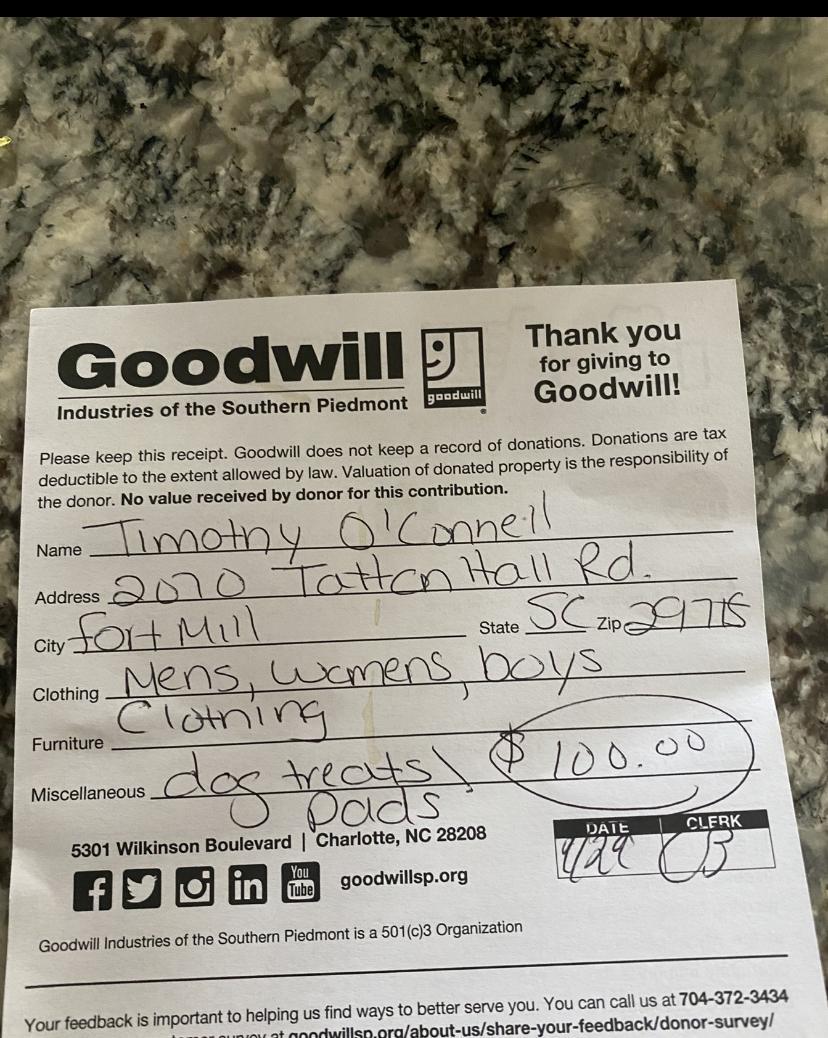 Goodwill
Industries of the Southern Piedmont
goodwill
Thank you
for giving to
Goodwill!
Please keep this receipt. Goodwill does not keep a record of donations. Donations are tax
deductible to the extent allowed by law. Valuation of donated property is the responsibility of
the donor. No value received by donor for this contribution.
Name Timothy O'Connell
Address 2070 Tatton Hall Rd.
City fort Mill State SC Zip 29715
Clothing Mens, womens, boys
Clothing
Furniture
Miscellaneous dog treats \ $ 100.00
pads
5301 Wilkinson Boulevard | Charlotte, NC 28208
DATE CLERK
CB
You
Tube
goodwillsp.org
Goodwill Industries of the Southern Piedmont is a 501(c)3 Organization
Your feedback is important to helping us find ways to better serve you. You can call us at 704-372-3434
survey at goodwillsp.org/about-us/share-your-feedback/donor-survey/